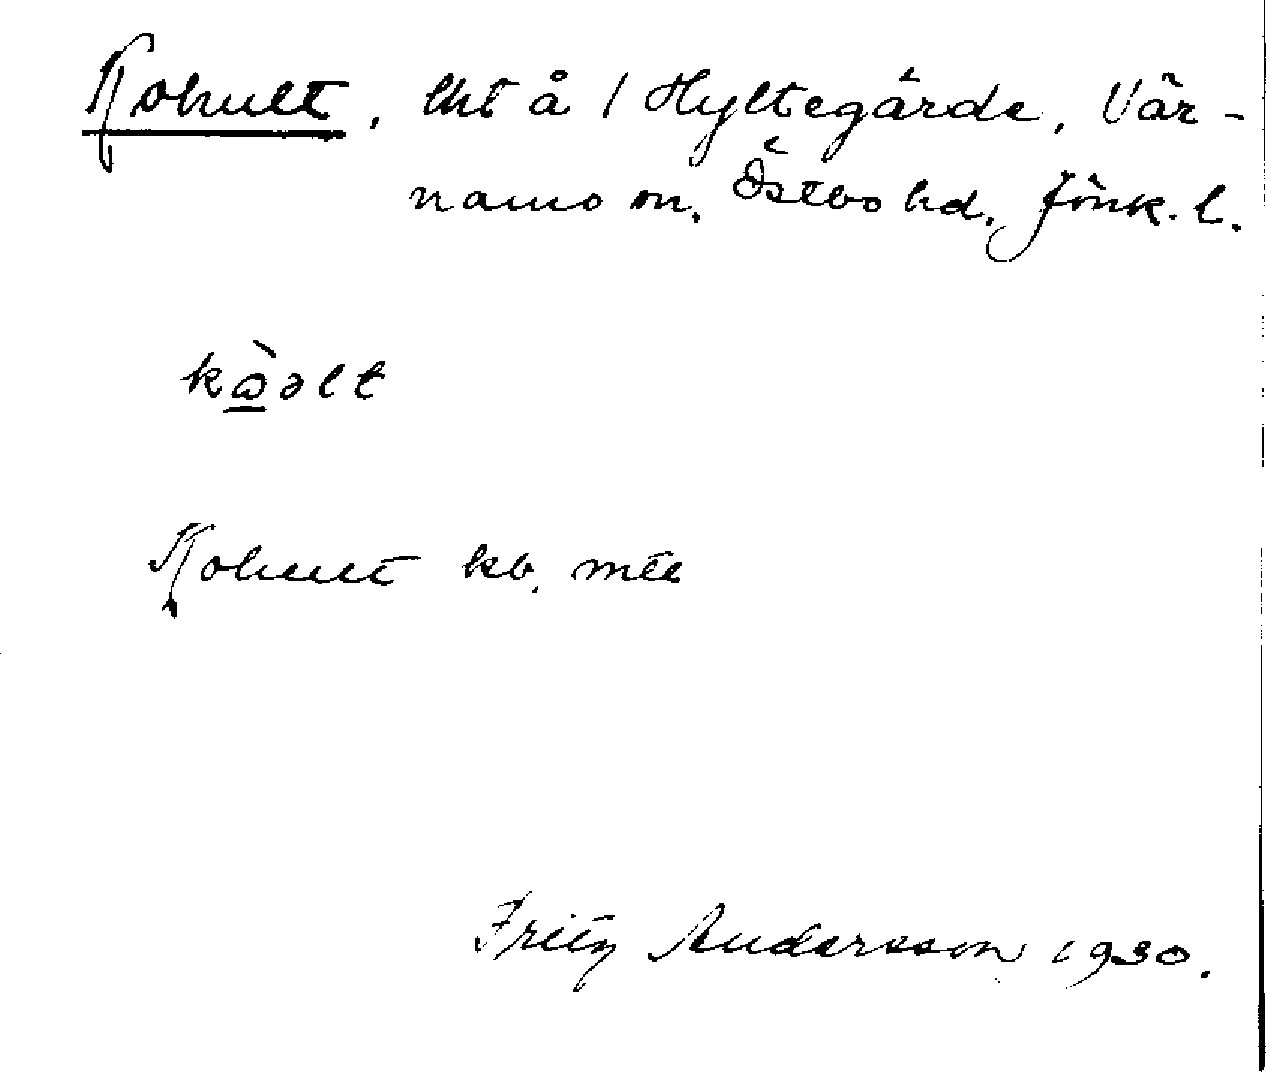 Kohult, lht å 1 Hyltegärde, Vär-
namo sn. Östbo hd. Jönk. l.
kòəlt
Kohult kb. mtl
Fritz Andersson 1930.